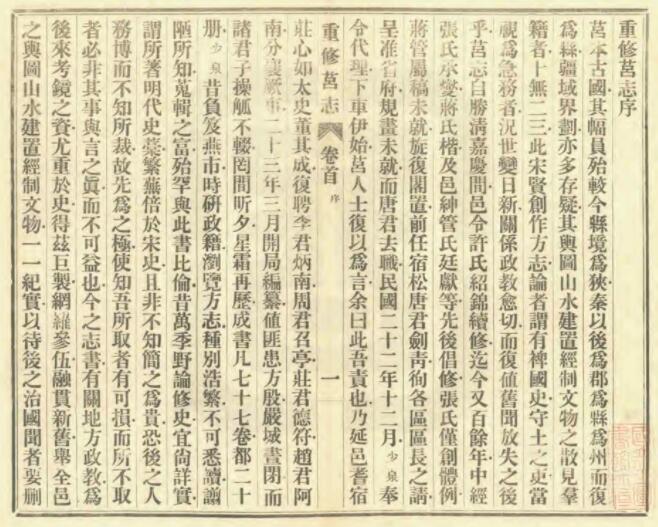 重修莒志序
莒本古國其幅員殆較今縣境爲狹秦以後爲郡爲縣爲州而復
爲縣疆域界劃亦多存疑其輿圖山水建置經制文物之散見羣
籍者十無二三此宋賢創作方志論者謂有裨國史守土之吏當
視爲急務者況世變日新關係政教愈切而復値舊聞放失之後
乎莒志自勝清嘉慶間邑令許氏紹錦續修迄今又百餘年中經
張氏承燮蔣氏楷及邑紳管氏廷獻等先後倡修張氏僅創體例
蔣管屬稿未就旋復閣置前任宿松唐君劍靑徇各區區長之請
呈准省府規畫未就而唐君去職民國二十二年十二月少泉奉
令代理下車伊始莒人士復以爲言余曰此吾責也乃延邑耆宿
重修莒志 卷首 序 一
莊心如太史董其成復聘李君炳南周君召亭莊君德符趙君阿
南分襄厥事二十三年三月開局編纂値匪患方殷嚴城晝閉而
諸君子操觚不輟罔間昕夕星霜再歷成書凡七十七卷都二十
册少泉昔負笈燕市時硏政籍瀏覽方志種別浩繁不可悉讀譾
陋所知蒐輯之富殆罕與此書比倫昔萬季野論修史宜尙詳實
謂所著明代史藁繁蕪倍於宋史且非不知簡之爲貴恐後之人
務博而不知所裁故先爲之極使知吾所取者有可損而所不取
者必非其事與言之眞而不可益也今之志書有關地方政教爲
後來考鏡之資尤重於史得茲巨製網羅參伍融貫新舊舉全邑
之輿圖山水建置經制文物一一紀實以待後之治國聞者要刪